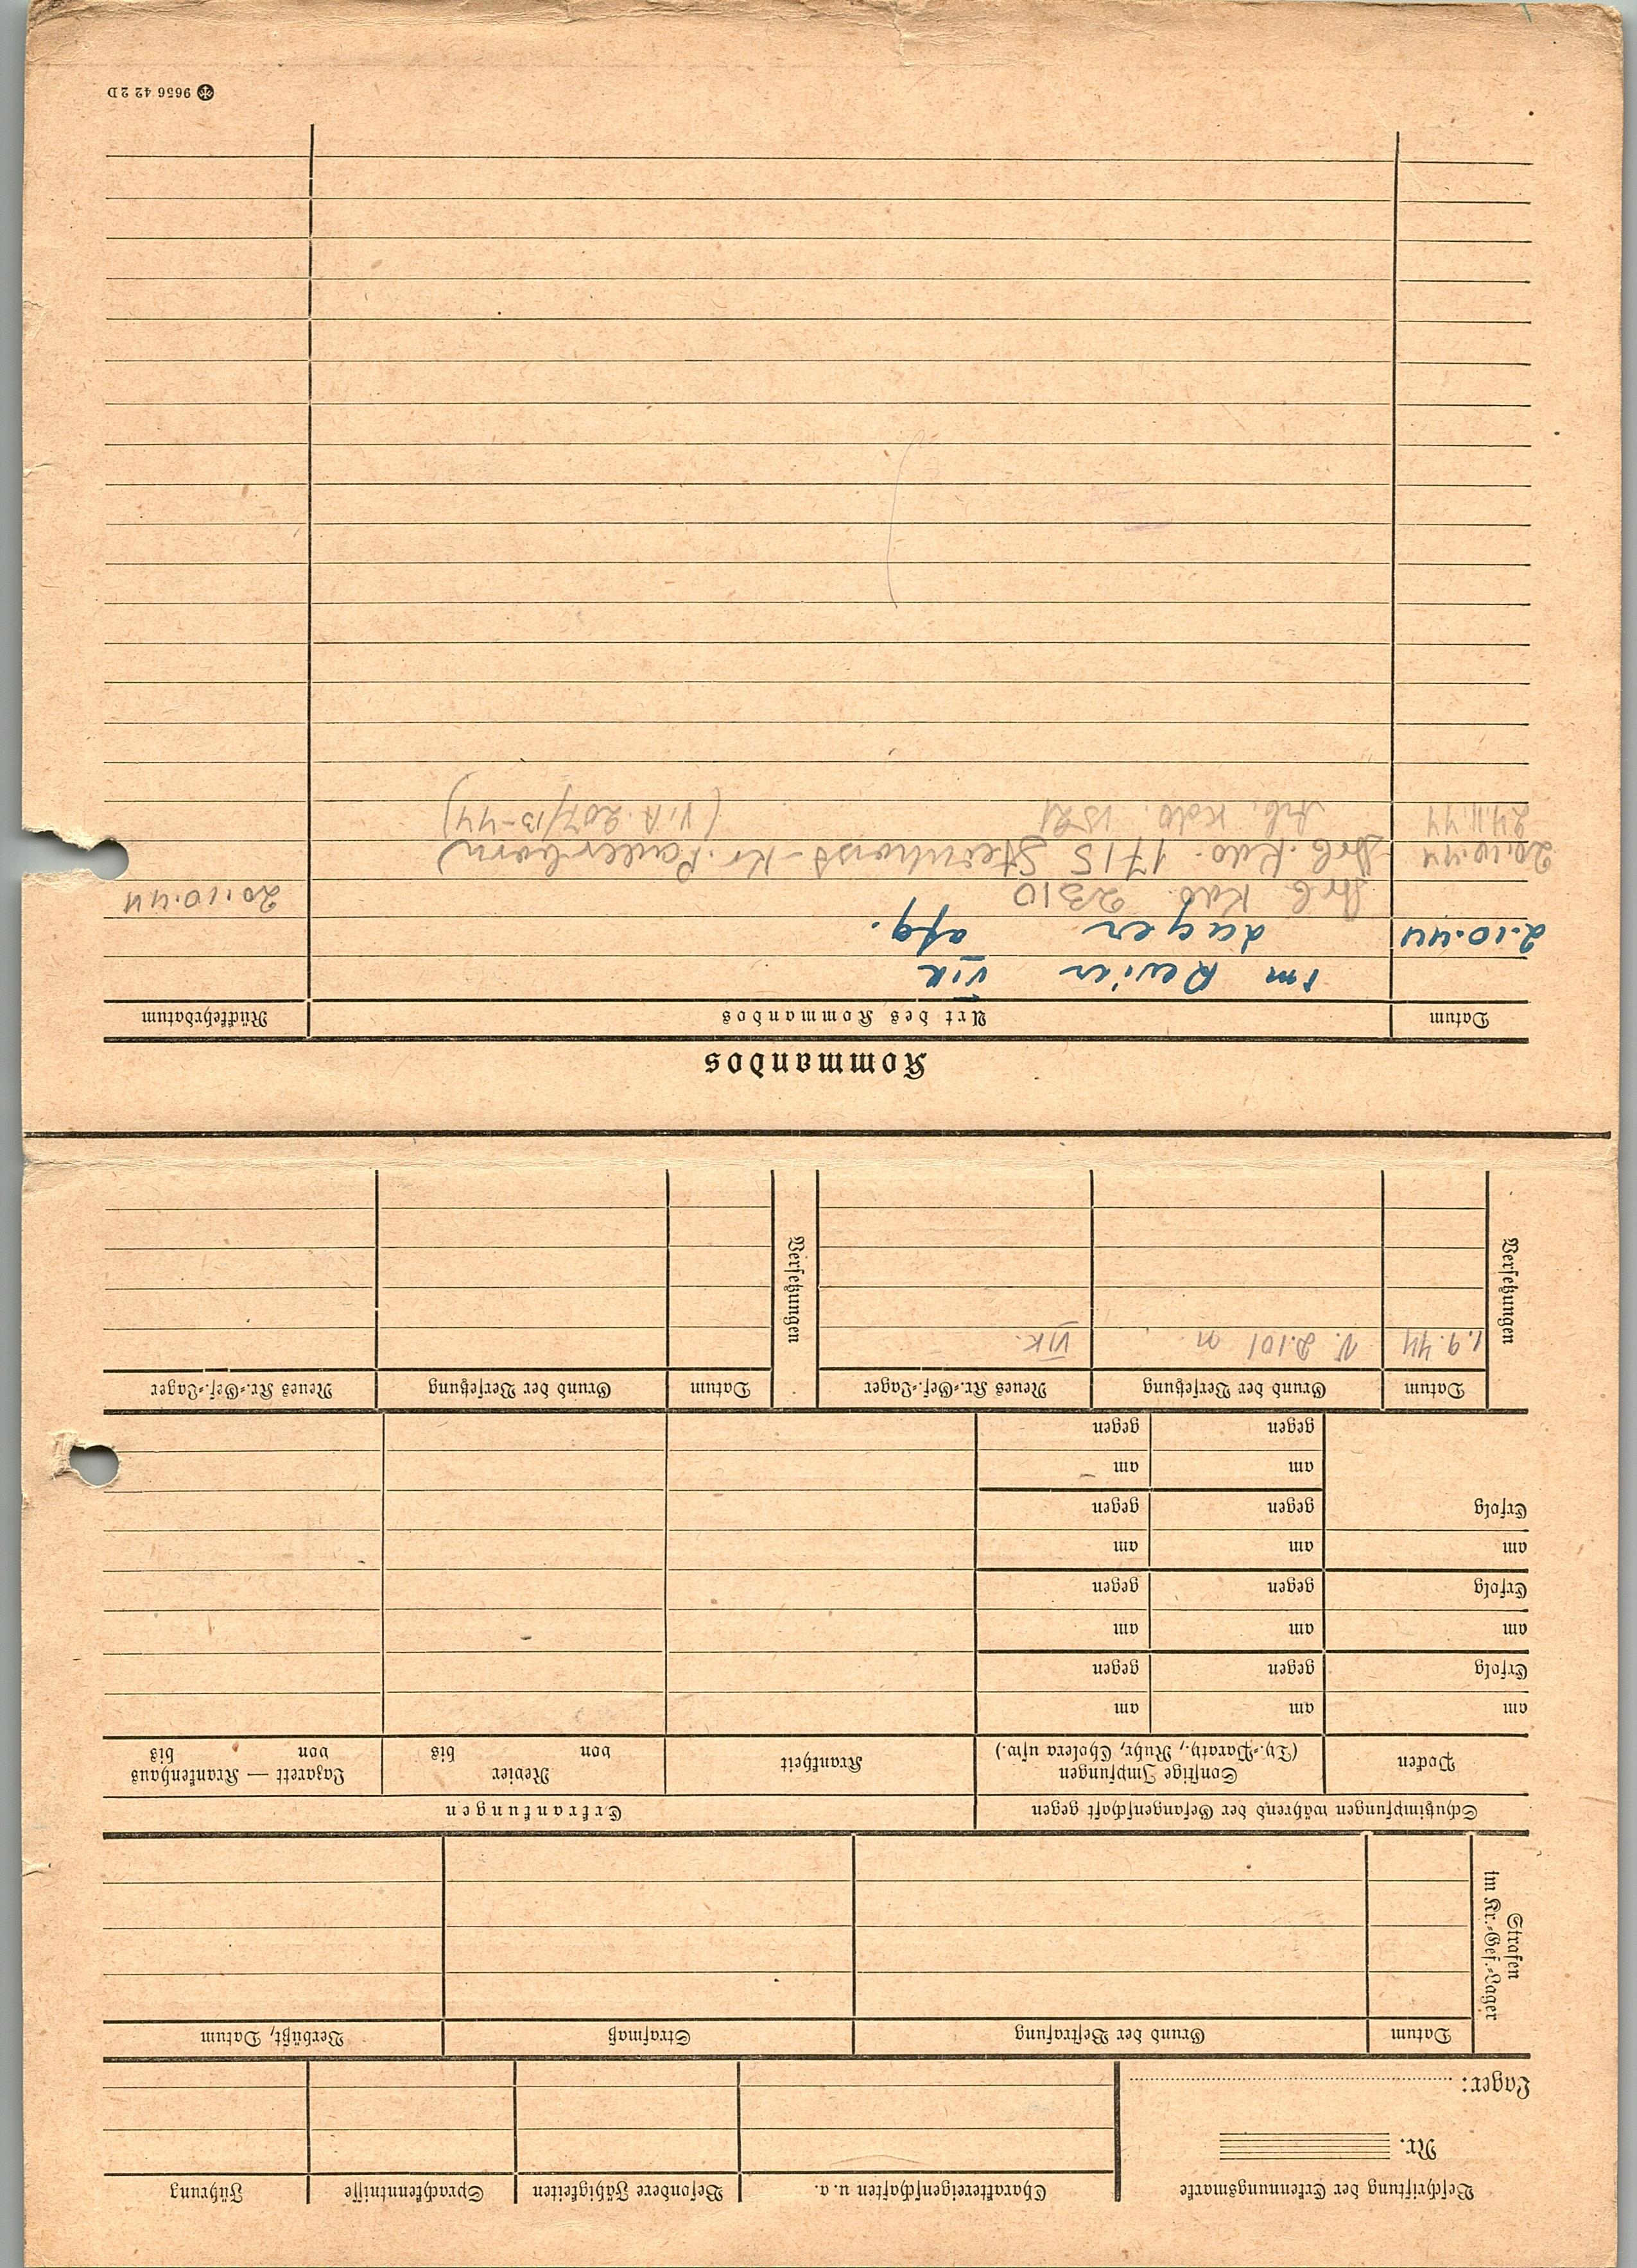 Beschriftung der Erkennungsmarke
Nr.
Lager:
Charaktereigenschaften u. a.
Besondere Fähigkeiten
Sprachkenntnisse
Führung
Strafen
im Kr.-Gef.-Lager
Datum
Grund der Bestrafung
Strafmaß
Verbüßt, Datum
Schutzimpfungen während der Gefangenschaft gegen
Erkrankungen
Pocken
Sonstige Impfungen
(Ty.-Paraty., Ruhr, Cholera usw.)
Krankheit
Revier
von bis
Lazarett — Krankenhaus
von bis
am am am
Erfolg gegen gegen
am am am
Erfolg gegen gegen
am am am
Erfolg gegen gegen
am am
gegen gegen
Versetzungen
Datum
Grund der Versetzung
Neues Kr.-Gef.-Lager
1.9.44 V. 2.101 m VI K.
Versetzungen
Datum
Grund der Versetzung
Neues Kr.-Gef.-Lager
Kommandos
Datum
Art des Kommandos
Rückkehrdatum
im Revier VI K
2.10.44 Lager afg.
Arb Kdo. 2310 20.10.44
20.10.44 Arb. Kdo. 1715 Steinhorst - Kr. Paderborn)
24.11.44 Arb. Kdo. 1521 (VI A. 207/13-44)
9656 42 2D